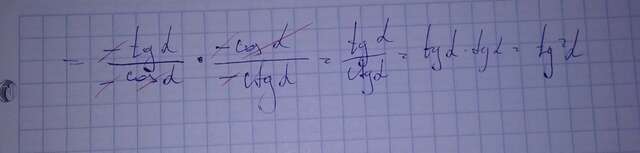 = -tgα / -cosα · -cosα / -ctgα = tgα / ctgα = tgα · tgα = tg²α